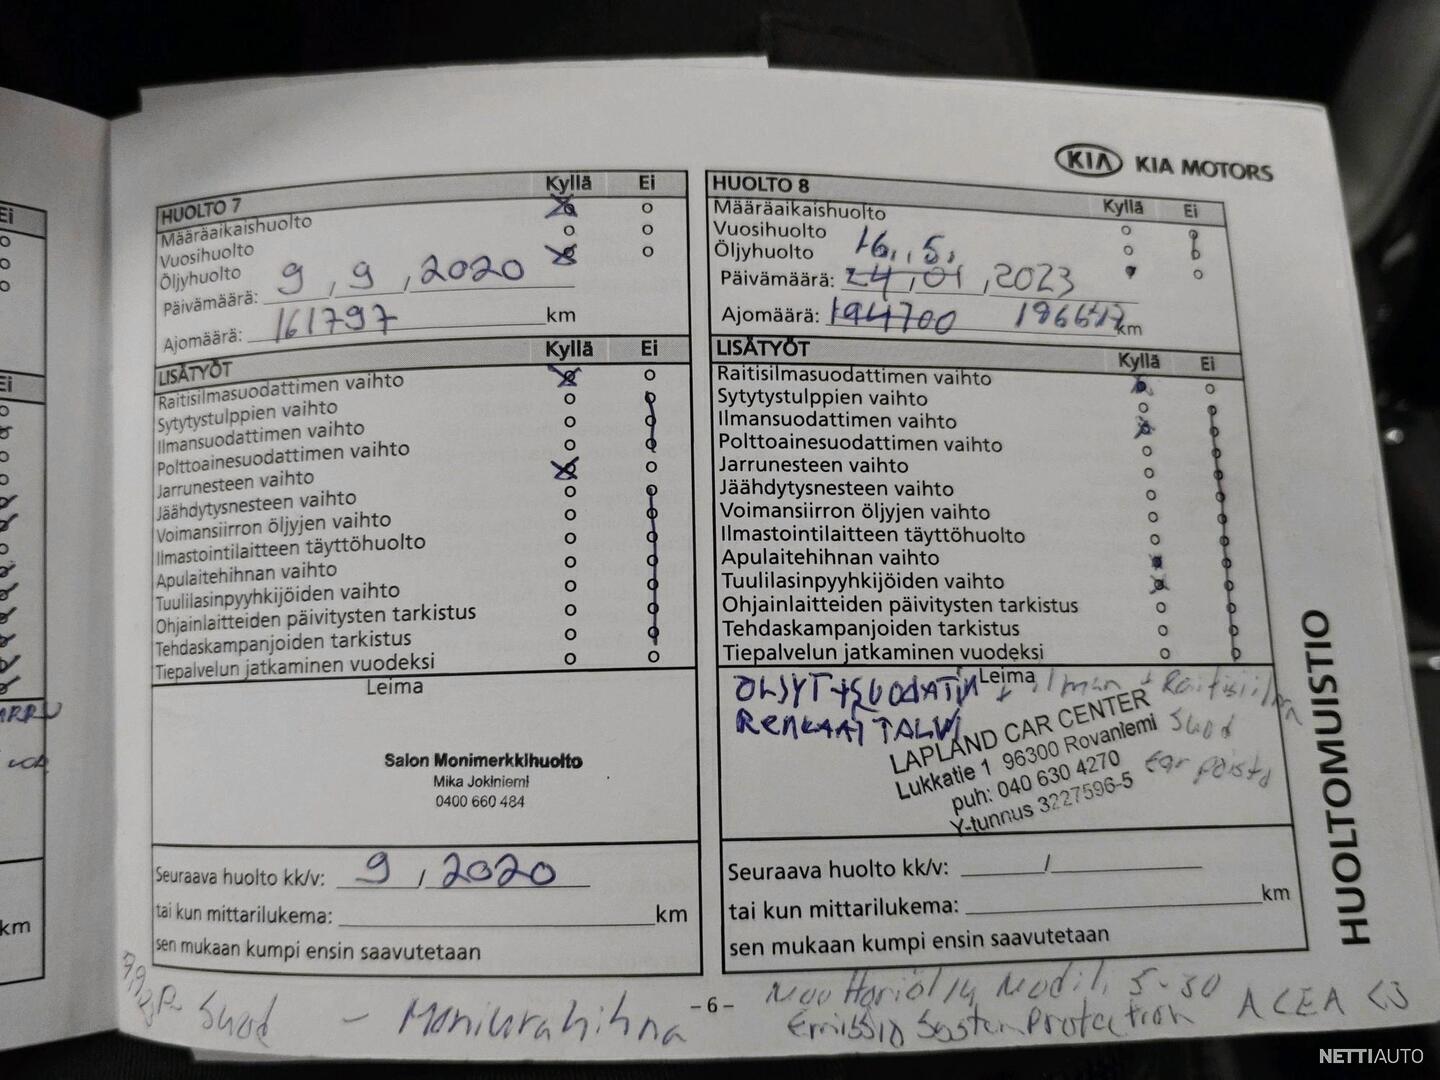 KIA KIA MOTORS
HUOLTO 7 Kyllä Ei
Määräaikaishuolto
Vuosihuolto
Öljyhuolto
Päivämäärä: 9, 9, 2020
Ajomäärä: 161797 km
LISÄTYÖT Kyllä Ei
Raitisilmasuodattimen vaihto
Sytytystulppien vaihto
Ilmansuodattimen vaihto
Polttoainesuodattimen vaihto
Jarrunesteen vaihto
Jäähdytysnesteen vaihto
Voimansiirron öljyjen vaihto
Ilmastointilaitteen täyttöhuolto
Apulaitehihnan vaihto
Tuulilasinpyyhkijöiden vaihto
Ohjainlaitteiden päivitysten tarkistus
Tehdaskampanjoiden tarkistus
Tiepalvelun jatkaminen vuodeksi
Leima
Salon Monimerkkihuolto
Mika Jokiniemi
0400 660 484
Seuraava huolto kk/v: 9 / 2020
tai kun mittarilukema: km
sen mukaan kumpi ensin saavutetaan
Suod - Moniurahihna
HUOLTO 8 Kyllä Ei
Määräaikaishuolto
Vuosihuolto
Öljyhuolto 16. 5.
Päivämäärä: 24, 01, 2023
Ajomäärä: 194700 km
LISÄTYÖT Kyllä Ei
Raitisilmasuodattimen vaihto
Sytytystulppien vaihto
Ilmansuodattimen vaihto
Polttoainesuodattimen vaihto
Jarrunesteen vaihto
Jäähdytysnesteen vaihto
Voimansiirron öljyjen vaihto
Ilmastointilaitteen täyttöhuolto
Apulaitehihnan vaihto
Tuulilasinpyyhkijöiden vaihto
Ohjainlaitteiden päivitysten tarkistus
Tehdaskampanjoiden tarkistus
Tiepalvelun jatkaminen vuodeksi
Leima
ÖLJYT + SUODATIN + ilman + Raitisilm
RENKAAT TALVI Suod
LAPLAND CAR CENTER
Lukkatie 1 96300 Rovaniemi
puh: 040 630 4270
Y-tunnus 3227596-5
Seuraava huolto kk/v: /
tai kun mittarilukema: km
sen mukaan kumpi ensin saavutetaan
Moottoriöljy Mobil 5-30 ACEA C3
Emission System Protection
- 6 -
HUOLTOMUISTIO
Ei
Ei
km
NETTIAUTO